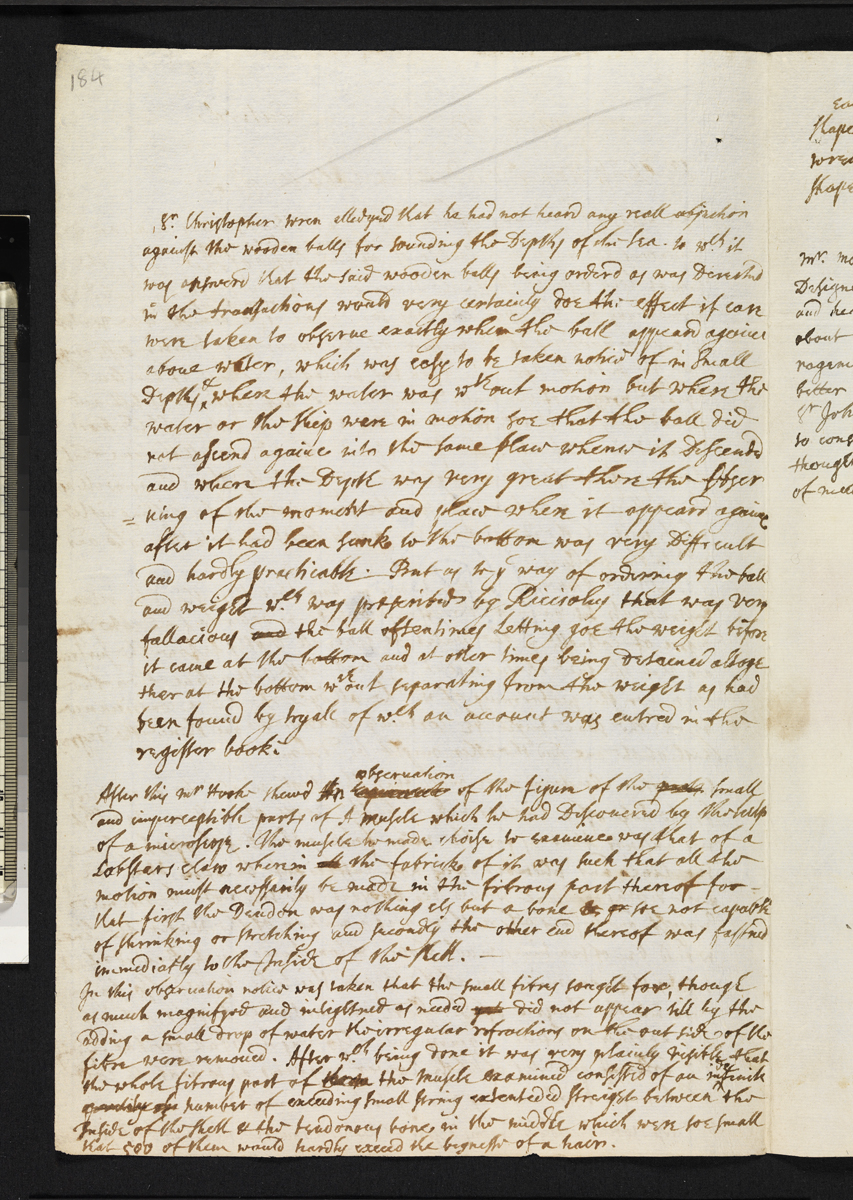 184
Sr. Christopher wren alledged that he had not heard any reall objection
against the wooden balls for sounding the Depths of the sea. to wch it
was answerd that the said wooden balls being orderd as was Directed
in the transactions would very certainly doe the effect if care
were taken to observe exactly when the ball appeard againe
aboue water, which was easy to be taken notice of in small
Depths, where the water was wthout motion but where the
water or the ship were in motion soe that the ball did
not ascend againe into the same place whence it Descended
and where the Depth was very great there the obser
=uing of the moment and place where it appeard againe
after it had been sunk to the bottom was very Difficult
and hardly practicable. But as to ye way of ordering the ball
and weight wch was prescribed by Ricciolus that was very
fallacious and the ball oftentimes Letting goe the weight before
it came at the bottom and at other times being Detained altoge
ther at the bottom wthout separating from the weight as had
been found by tryall of wch an account was entred in the
register booke
observation
After this mr Hooke shewd an experiment of the figure of the small
and imperceptible parts of a muscle which he had Discovered by the help
of a microscope. The muscle he made choise to examine was that of a
Lobstars claw wherein the fabrick of it was such that all the
motion must necessarily be made in the fibrous part thereof for -
that first the Dendon was nothing els but a bone soe not capable
of shrinking or stretching and secondly the other end thereof was fastned
immediatly to the Inside of the shell. -
In this observation notice was taken that the small fibres sought for, though
as much magnifyed and inlightned as needed did not appear till by the
adding a small drop of water the irregular refractions on the out side of the
fibre were removed. After wch being done it was very plainly visible that
the whole fibrous part of the muscle examined consisted of an infinite
number of exceeding small string extended streight between the
Inside of the shell & the tendonous bone in the middle which were soe small
that 500 of them would hardly exceed the bignesse of a hair.
shape
wrea
shape
mr. mo
Designe
and
about
ragem
better
Sr Joh
to cons
thought
of